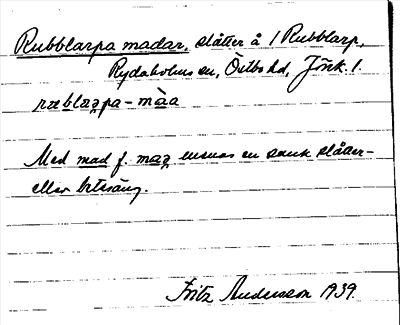 Rubblarpa madar, slåtter å 1 Rubblarp,
Rydaholms sn, Östbo hd, Jönk. l.
ræblaꝛpa-màa
Med mad f. maꝛ menas en sank slåtter-
eller betesäng.
Fritz Andersson 1939.